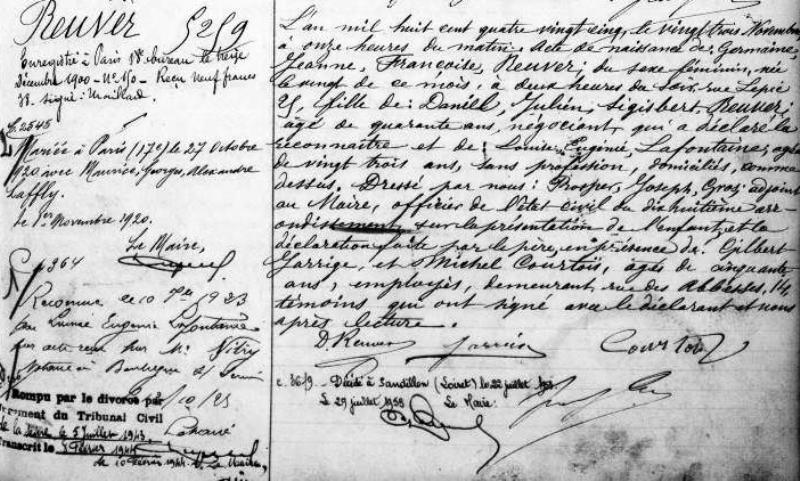 Reuver 5259
Enregistré à Paris 18e bureau le treize
Décembre 1900 - No 150 - Reçu Neuf francs
38. signé: Maillard.
C. 2545
Mariée à Paris (17e) le 27 Octobre
1920 avec Maurice, Georges, Alexandre
Laffly.
le 1er Novembre 1920.
Le Maire,
364
Reconnue le 10 1923
par Louise Eugénie Lafontaine
par acte reçu par Me Vitry
à
10/23
Rompu par le divorce par
jugement du Tribunal Civil
de la Seine le 5 juillet 1943.
Transcrit le 5 Février 1944
le 10 Février 1944.
L'an mil huit cent quatre vingt cinq, le vingt trois Novembre
à onze heures du matin. Acte de naissance de: Germaine,
Jeanne, Françoise, Reuver; du sexe féminin, née
le vingt de ce mois, à deux heures du soir, rue Lepic
25, fille de: Daniel, Julien, Sigisbert, Reuver,
âgé de quarante ans, négociant, qui a déclaré la
reconnaître et de: Louise, Eugénie, Lafontaine, agée
de vingt trois ans, sans profession, domiciliés, comme
dessus. Dressé par nous: Prosper, Joseph, Gros; adjoint
au Maire, officier de l'état civil du dix huitième arr-
ondissement sur la présentation de l'enfant, et la
déclaration faite par le père, en présence de: Gilbert
Jarrige, et Michel Courtois, agés de cinquante
ans, employés, demeurant rue des Abbesses, 14,
témoins qui ont signé avec le déclarant et nous
après lecture.
D. Reuver Jarrige Courtois
c. 3619 - Décédée à Sandillon (Loiret) le 22 juillet 1958.
Le 29 juillet 1958 Le Maire: